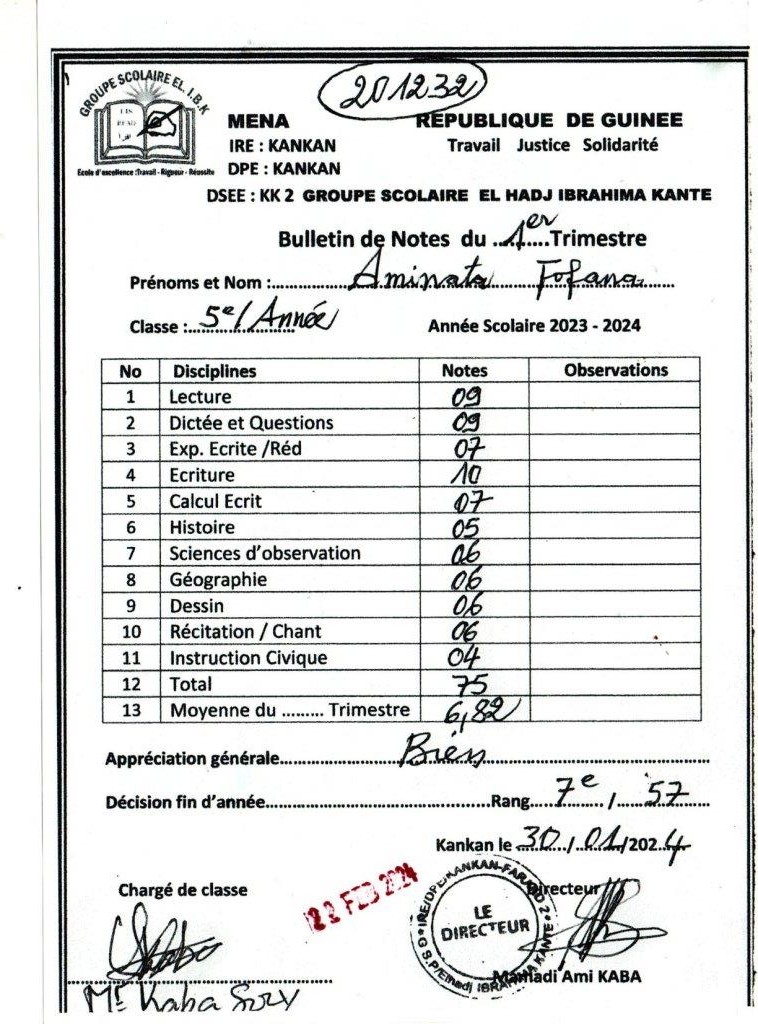 201232
GROUPE SCOLAIRE EL. I.B.K
Ecole d'excellence :Travail - Rigueur - Réussite
MENA
IRE : KANKAN
DPE : KANKAN
REPUBLIQUE DE GUINEE
Travail Justice Solidarité
DSEE : KK 2 GROUPE SCOLAIRE EL HADJ IBRAHIMA KANTE
Bulletin de Notes du ..1er....Trimestre
Prénoms et Nom :.......Aminata Fofana......
Classe :..5e/Année.....
Année Scolaire 2023 - 2024
No Disciplines Notes Observations
1 Lecture 09
2 Dictée et Questions 09
3 Exp. Ecrite /Réd 07
4 Ecriture 10
5 Calcul Ecrit 07
6 Histoire 05
7 Sciences d'observation 06
8 Géographie 06
9 Dessin 06
10 Récitation / Chant 06
11 Instruction Civique 04
12 Total 75
13 Moyenne du ......... Trimestre 6,82
Appréciation générale.......Bien.......
Décision fin d'année.......Rang....7e..../....57...
Kankan le 30/01/2024
Chargé de classe
22 FEB 2024
Directeur
LE
DIRECTEUR
Mamadi Ami KABA
Mr Kaba Sory